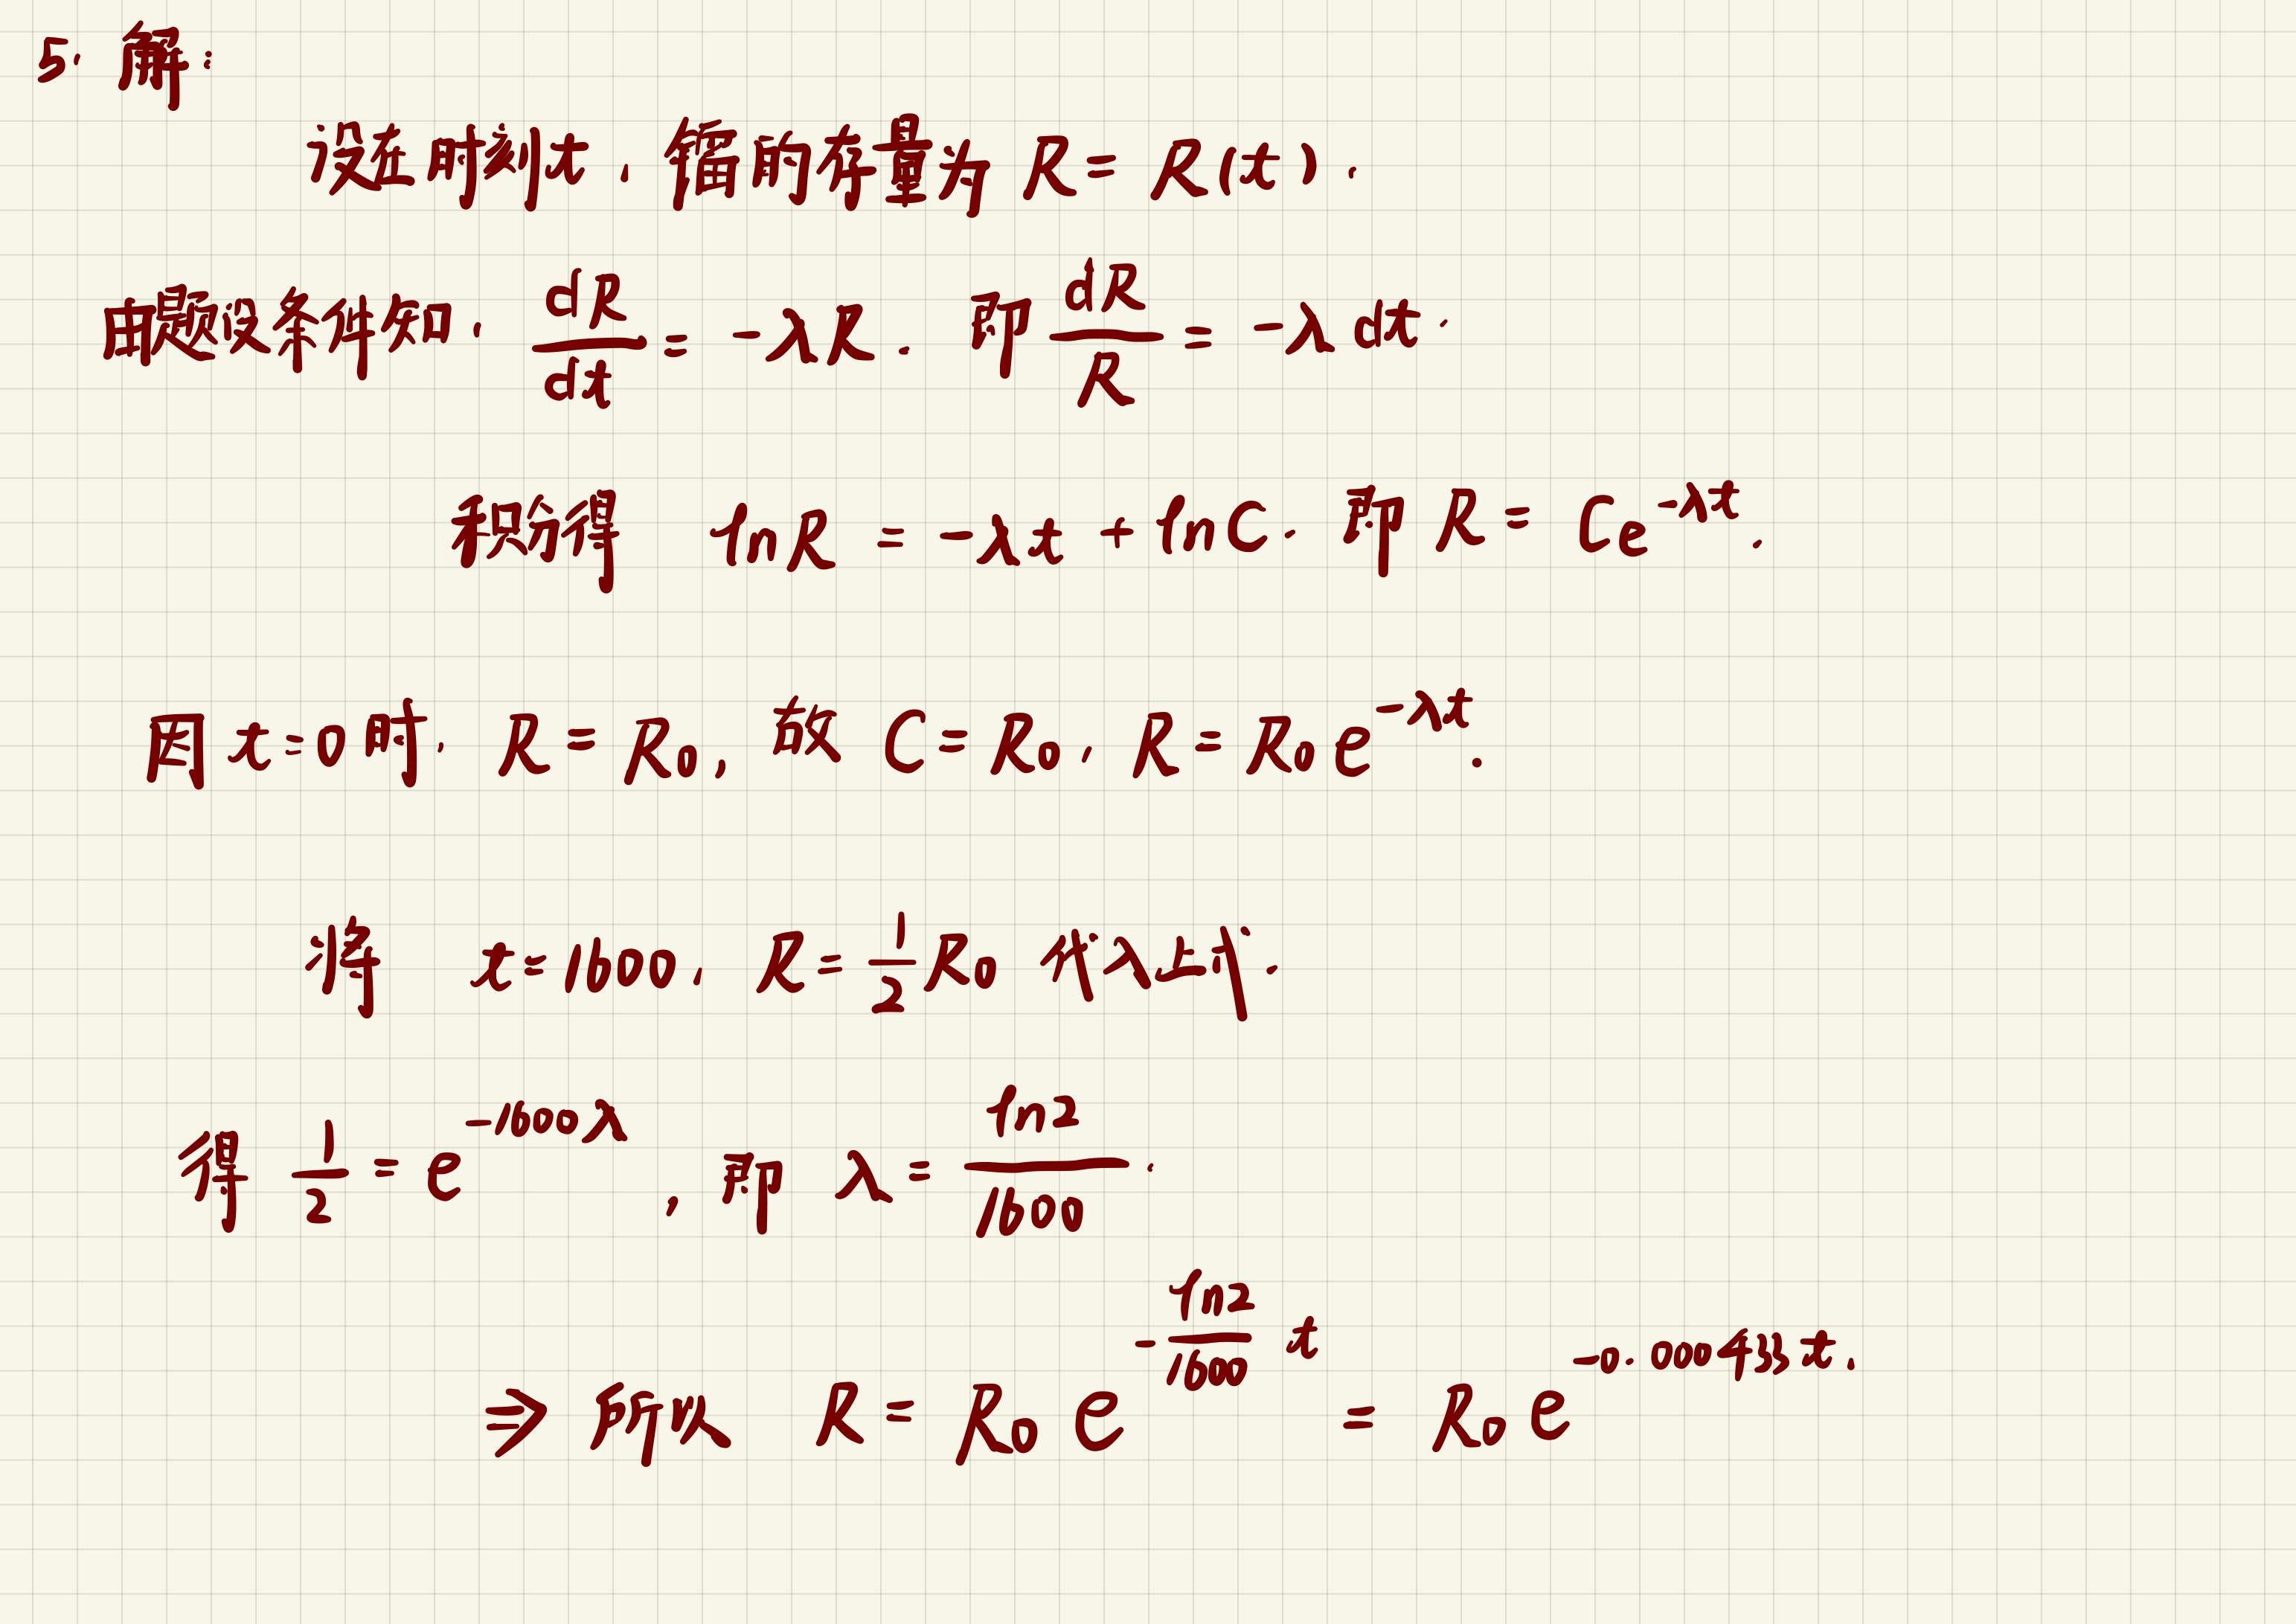 5. 解:
设在时刻t, 镭的存量为 R = R(t).
由题设条件知, dR/dt = -λR. 即 dR/R = -λ dt.
积分得 lnR = -λt + lnC. 即 R = Ce^{-λt}.
因 t=0时, R = R₀, 故 C = R₀, R = R₀e^{-λt}.
将 t=1600, R = 1/2 R₀ 代入上式.
得 1/2 = e^{-1600λ}, 即 λ = ln2/1600.
⇒ 所以 R = R₀ e^{-(ln2/1600) t} = R₀ e^{-0.000433t}.